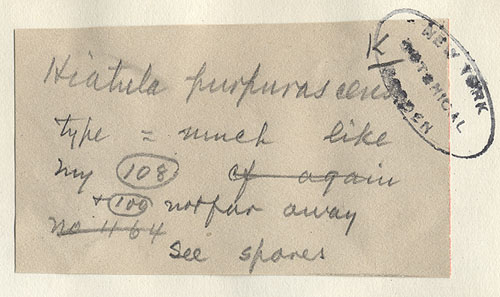 Hiatula purpurascens
type = much like
my 108 cf again
+ 109 not far away
no 1164
See spores
K
NEW YORK
BOTANICAL
GARDEN